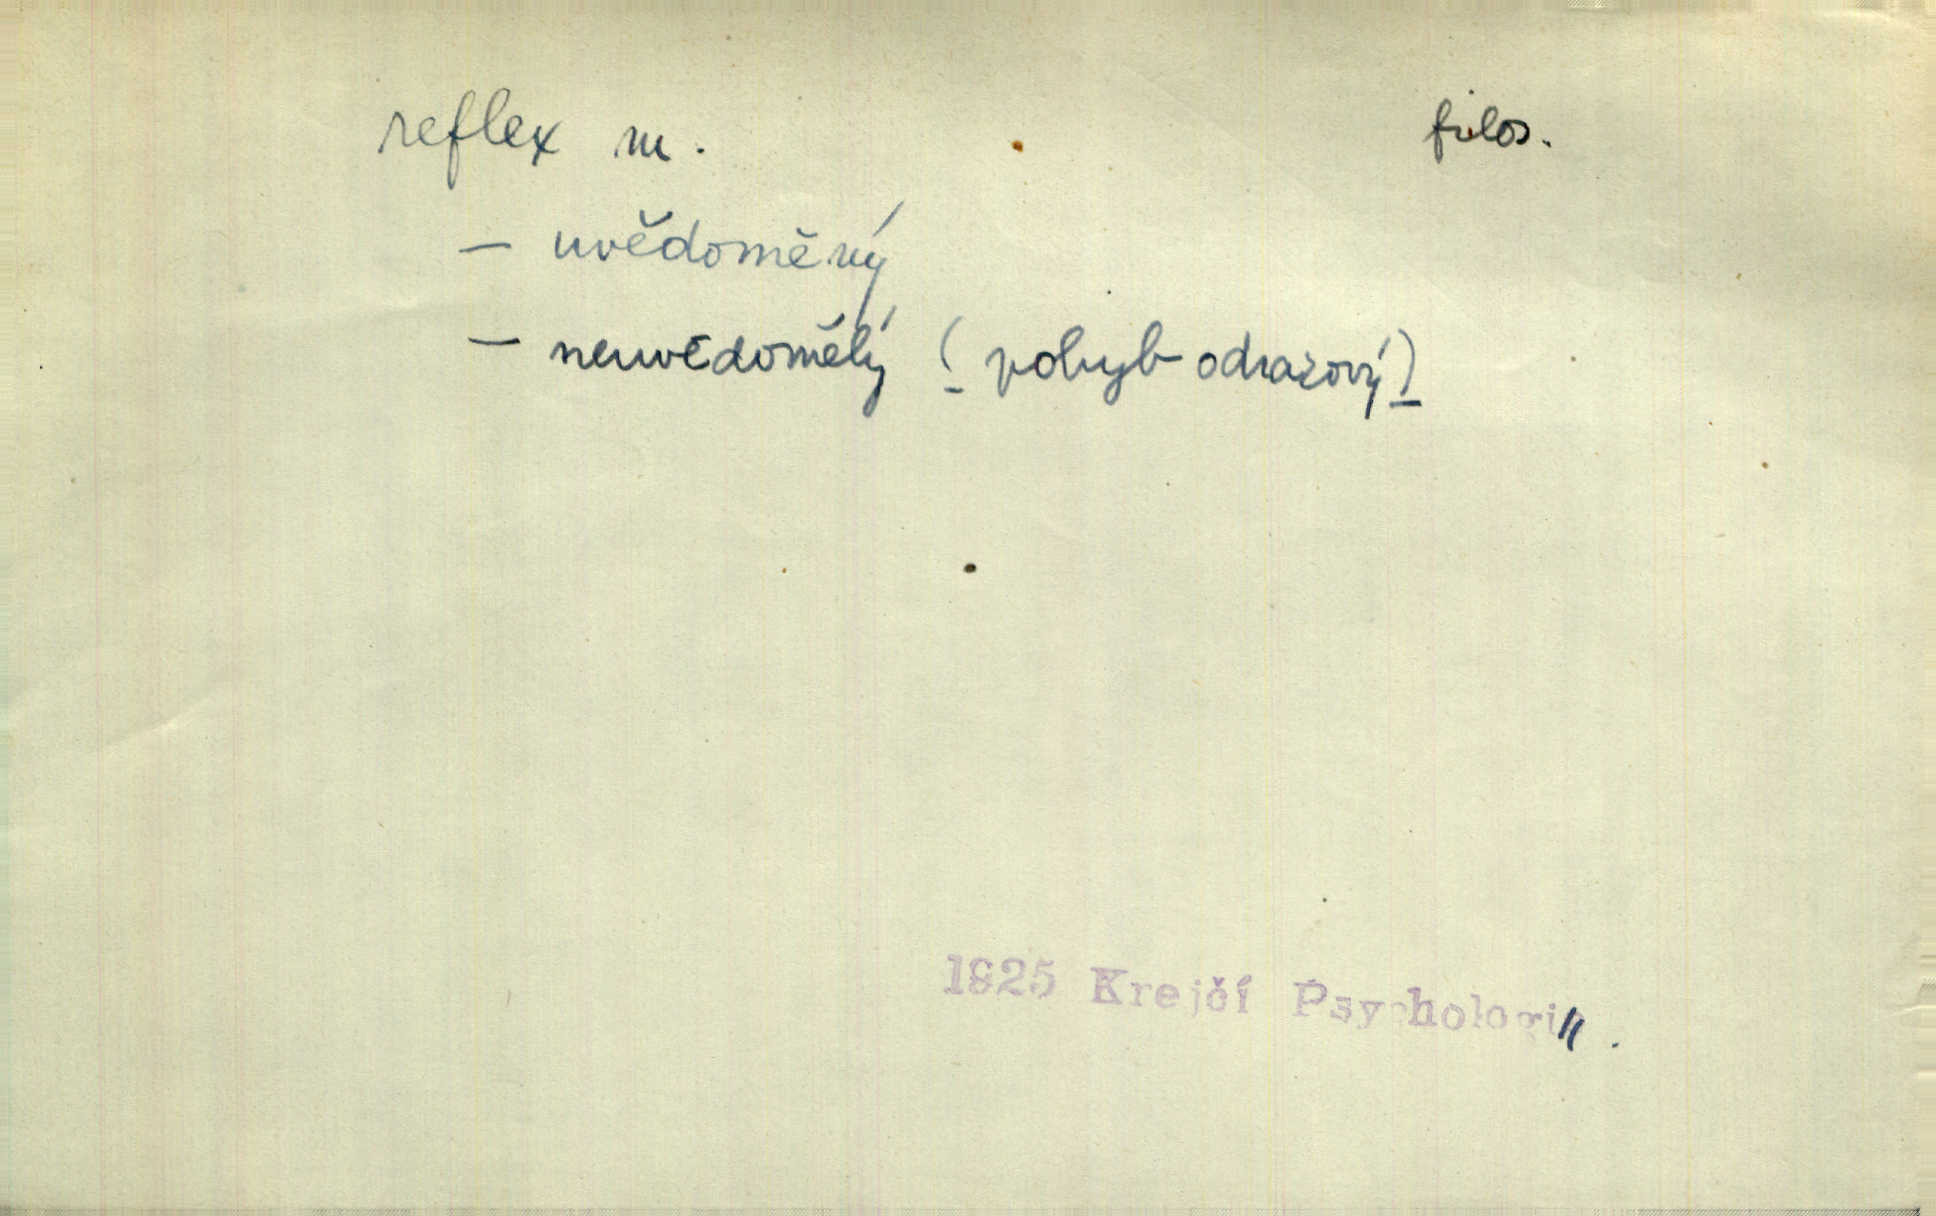 reflex m. filos.
— uvědoměný
— neuvědomělý (pohyb odrazový)
1925 Krejčí Psychologie